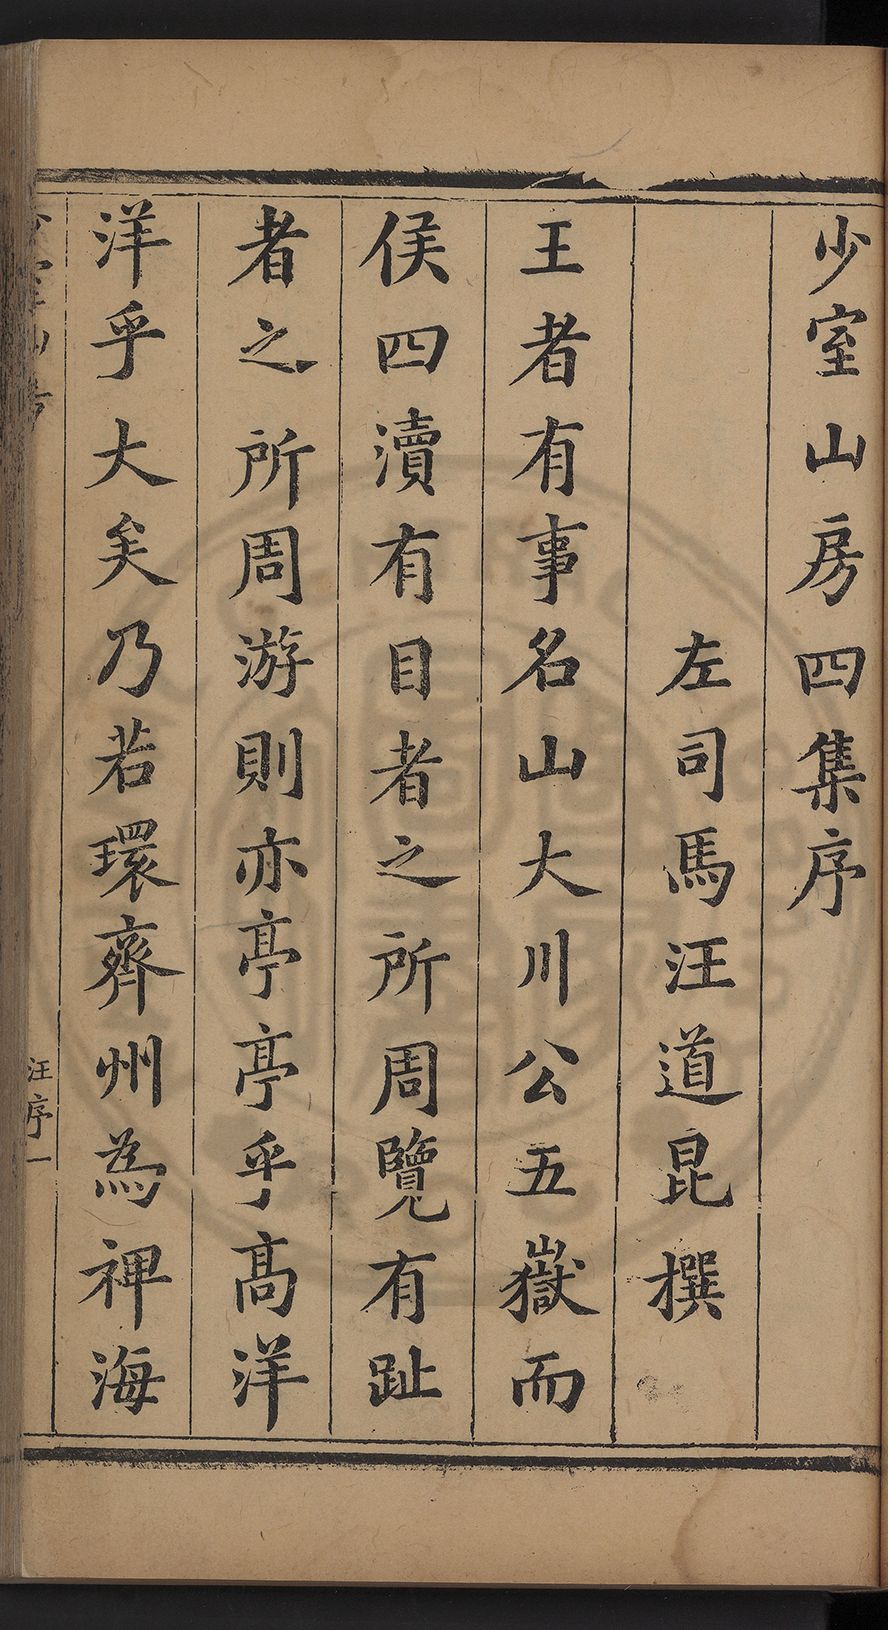 少室山房四集序
左司馬汪道昆撰
王者有事名山大川公五嶽而
侯四瀆有目者之所周覽有趾
者之所周游則亦亭亭乎高洋
洋乎大矣乃若環齊州為裨海
汪序一